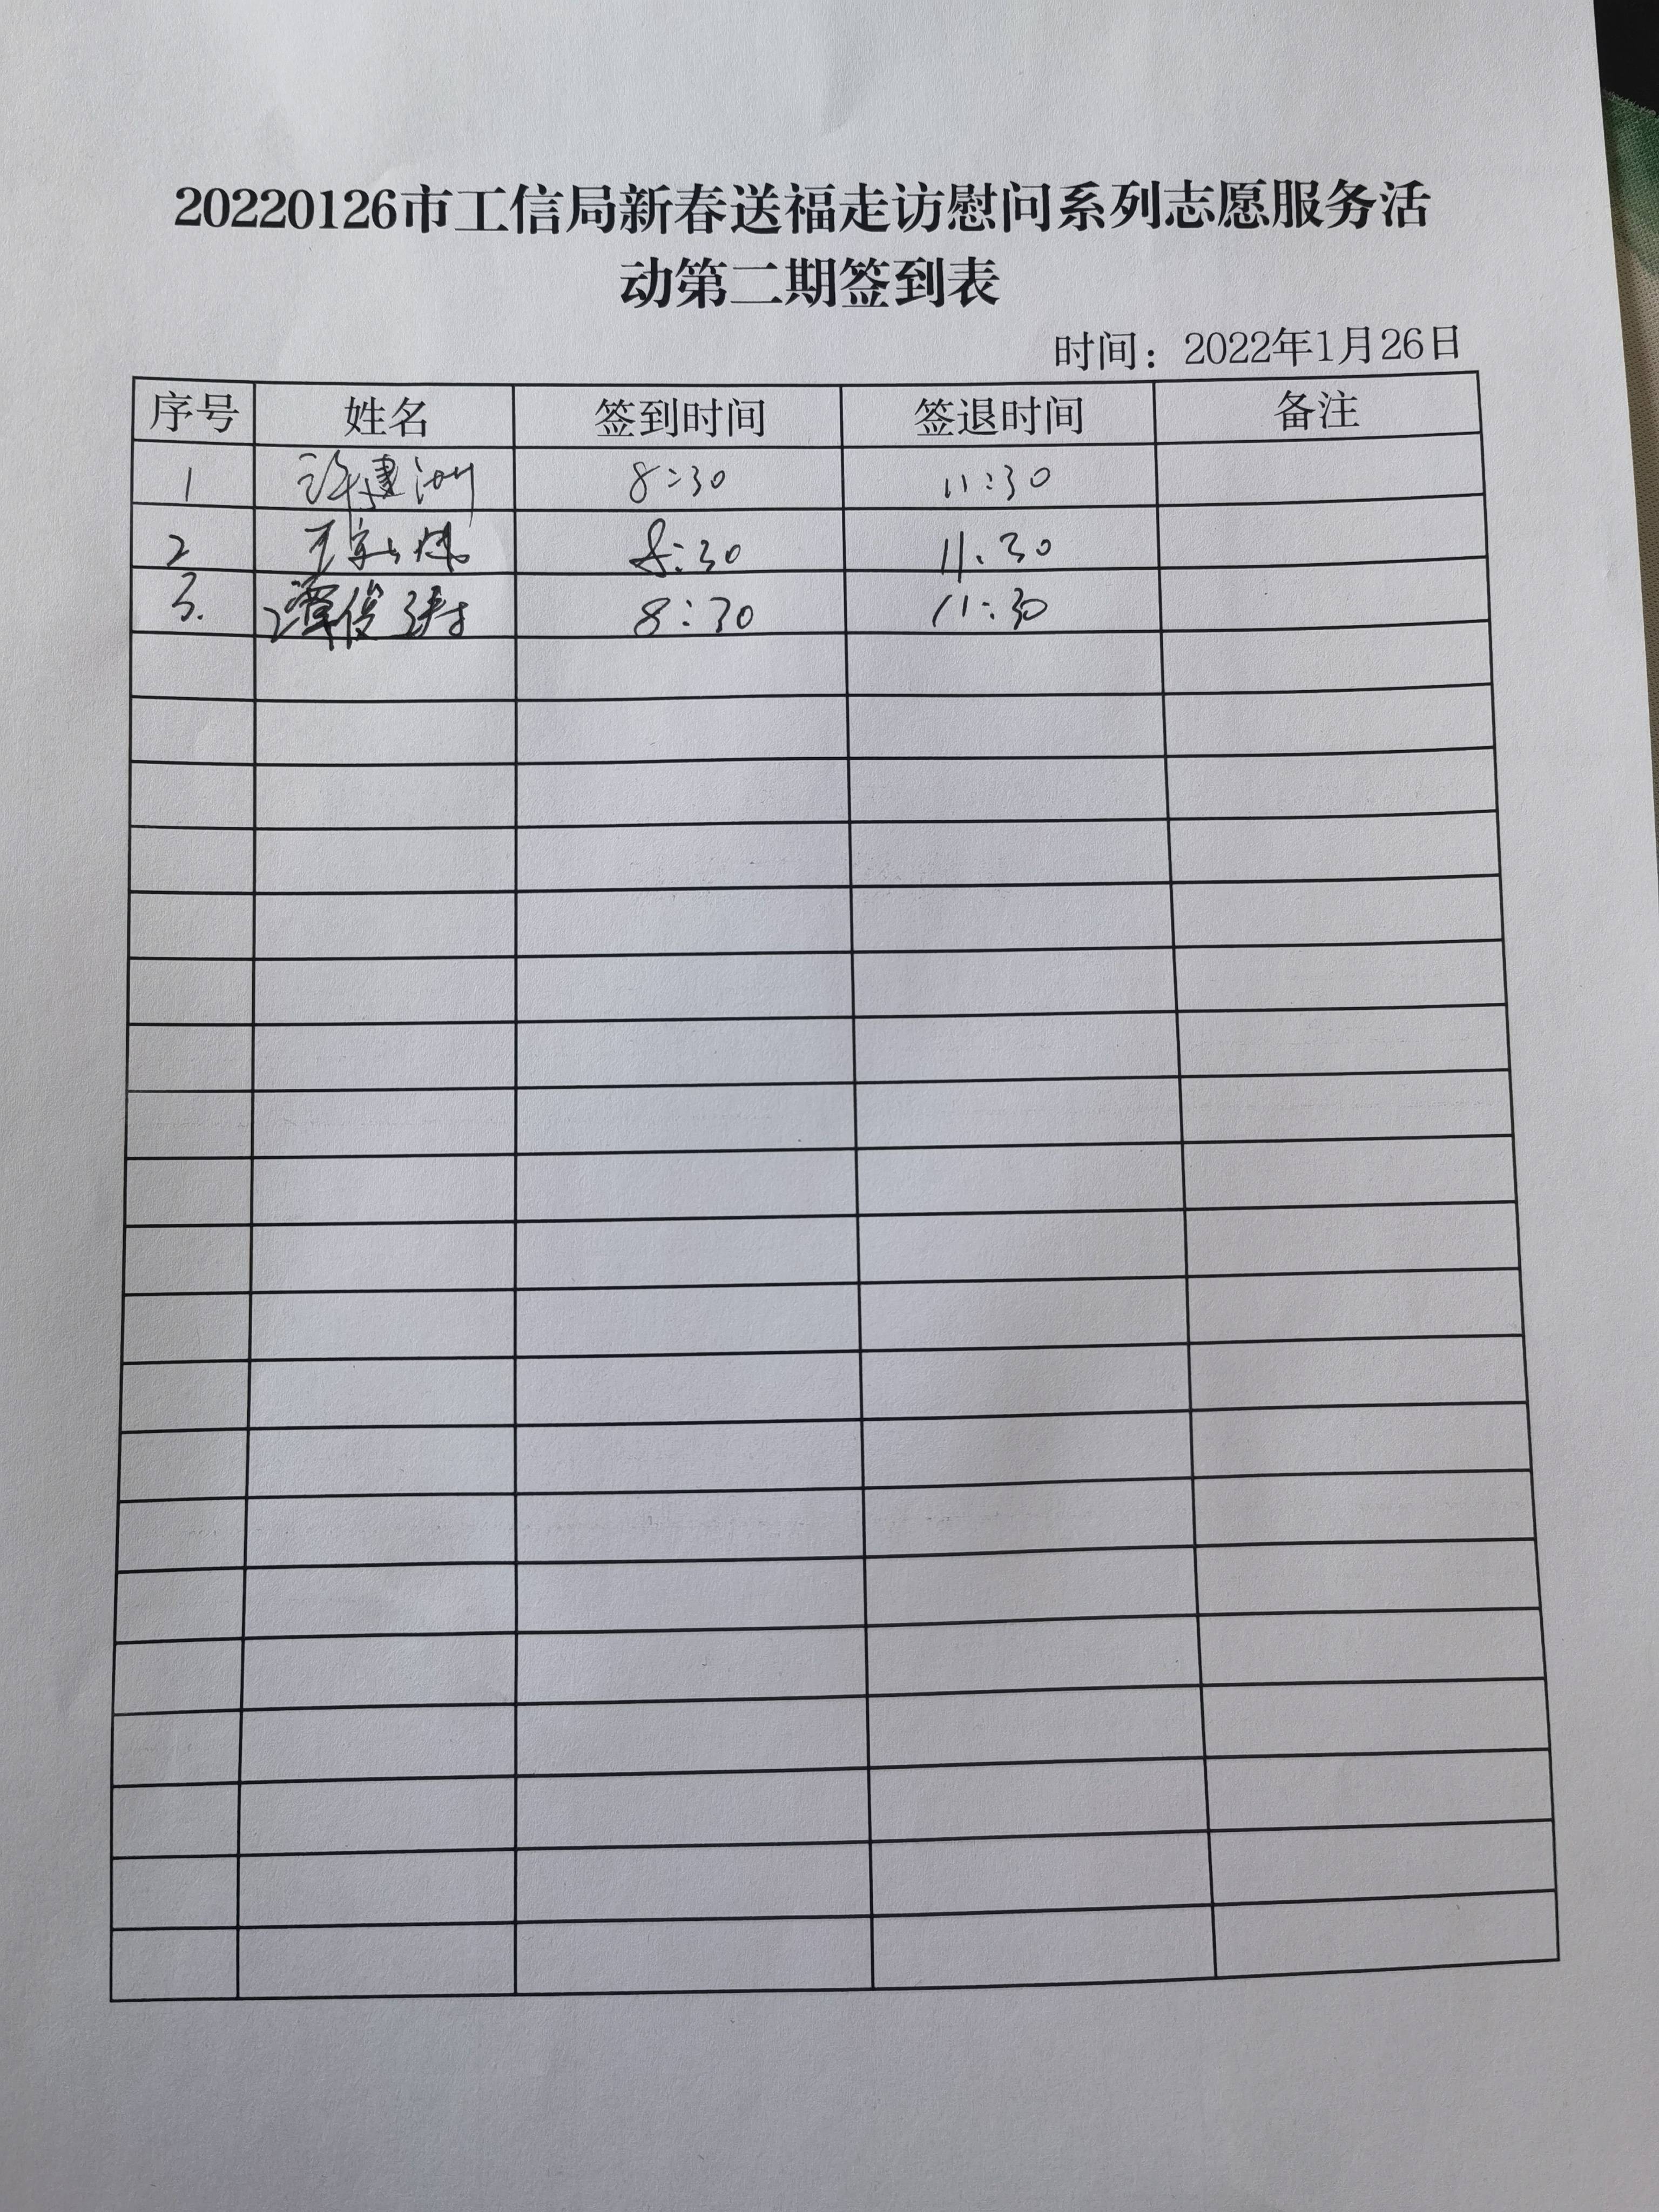 20220126市工信局新春送福走访慰问系列志愿服务活
动第二期签到表
时间：2022年1月26日
序号 姓名 签到时间 签退时间 备注
1 许建洲 8:30 11:30
2 8:30 11:30
3. 谭俊 8:30 11:30